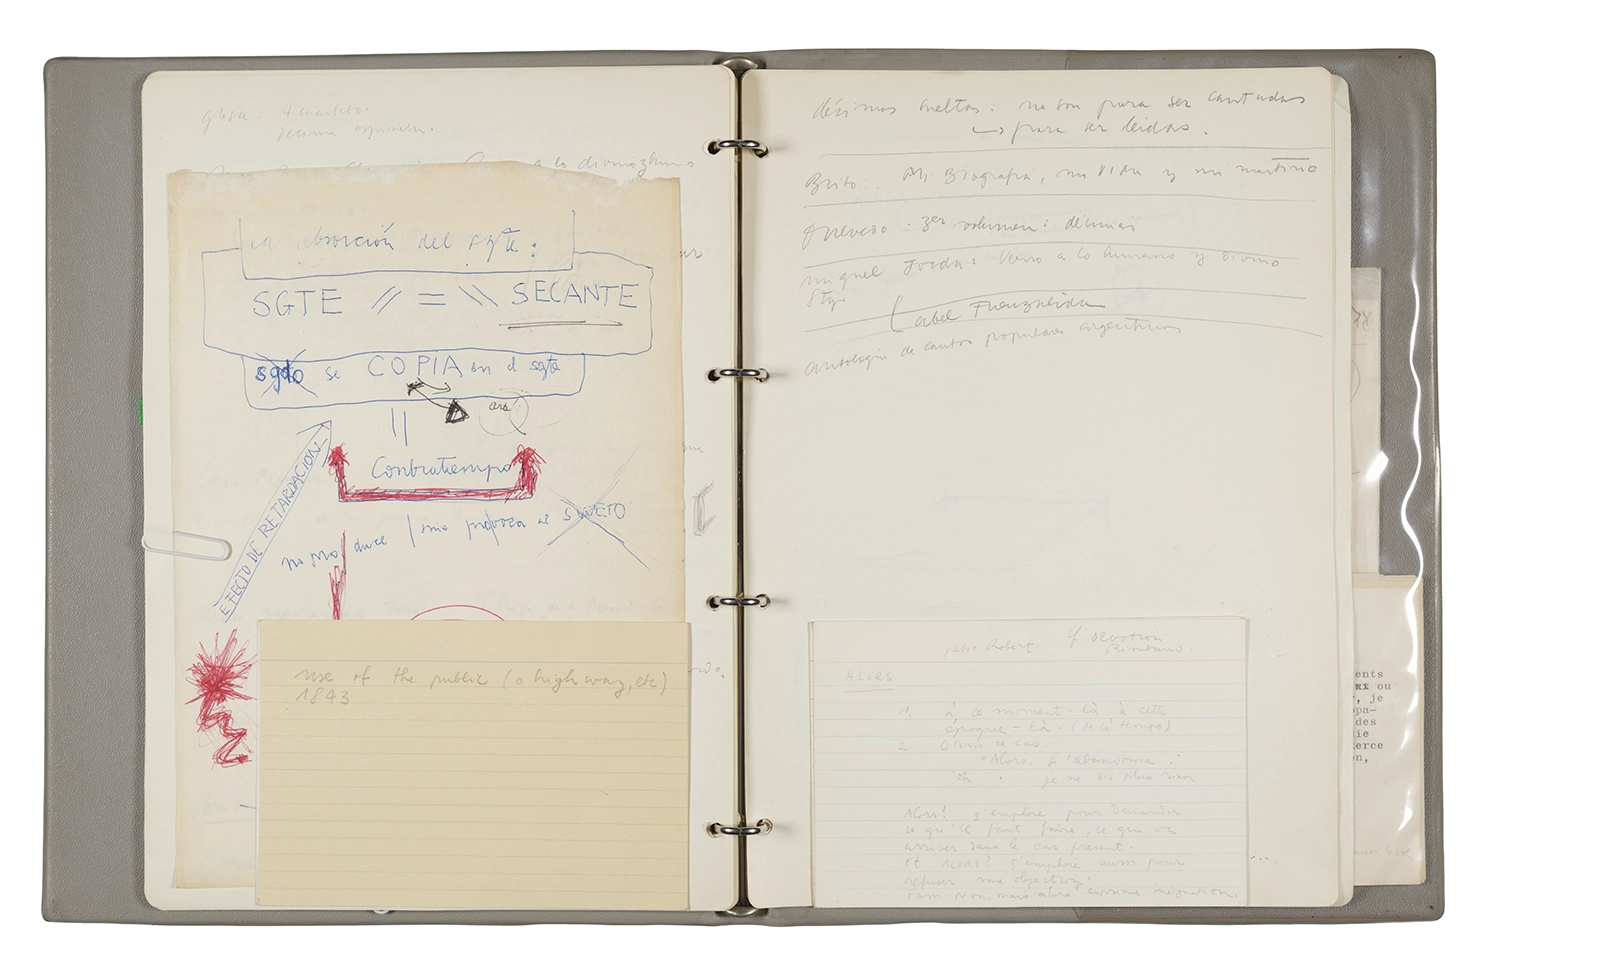 glosa: 4 cuarteto.
décima espinela.
a lo divino
La absorción del sgte:
SGTE // = \\ SECANTE
sgdo se COPIA en el sgte
ara:
||
Contratiempo
EFECTO DE RETARDACION
no produce / sino provoca al SUJETO
use of the public (a high way, etc)
1843
décimas sueltas: no son para ser cantadas
↳ para ser leídas.
Brito: Mi Biografía, mi vida y mi
Quevedo: 3er volumen: décimas
Miguel Jordá: Verso a lo humano y divino
Stgo
Fuenzalida
antología de cantos populares argentinos
petit Robert
cf Devotion
Rimbaud.
ALORS
1 à ce moment-là à cette
époque-là. (de ce temps)
2 Dans ce cas.
"Alors, j'abandonne."
je ne dis plus rien
Alors? s'emploie pour demander
ce qu'il faut faire, ce qui va
arriver dans le cas présent.
et ALORS? s'emploie aussi pour
refuser une objection.
Fam. Non, mais alors! exprime indignation.
ents
xx ou
, je
pa-
des
lie
erce
on,